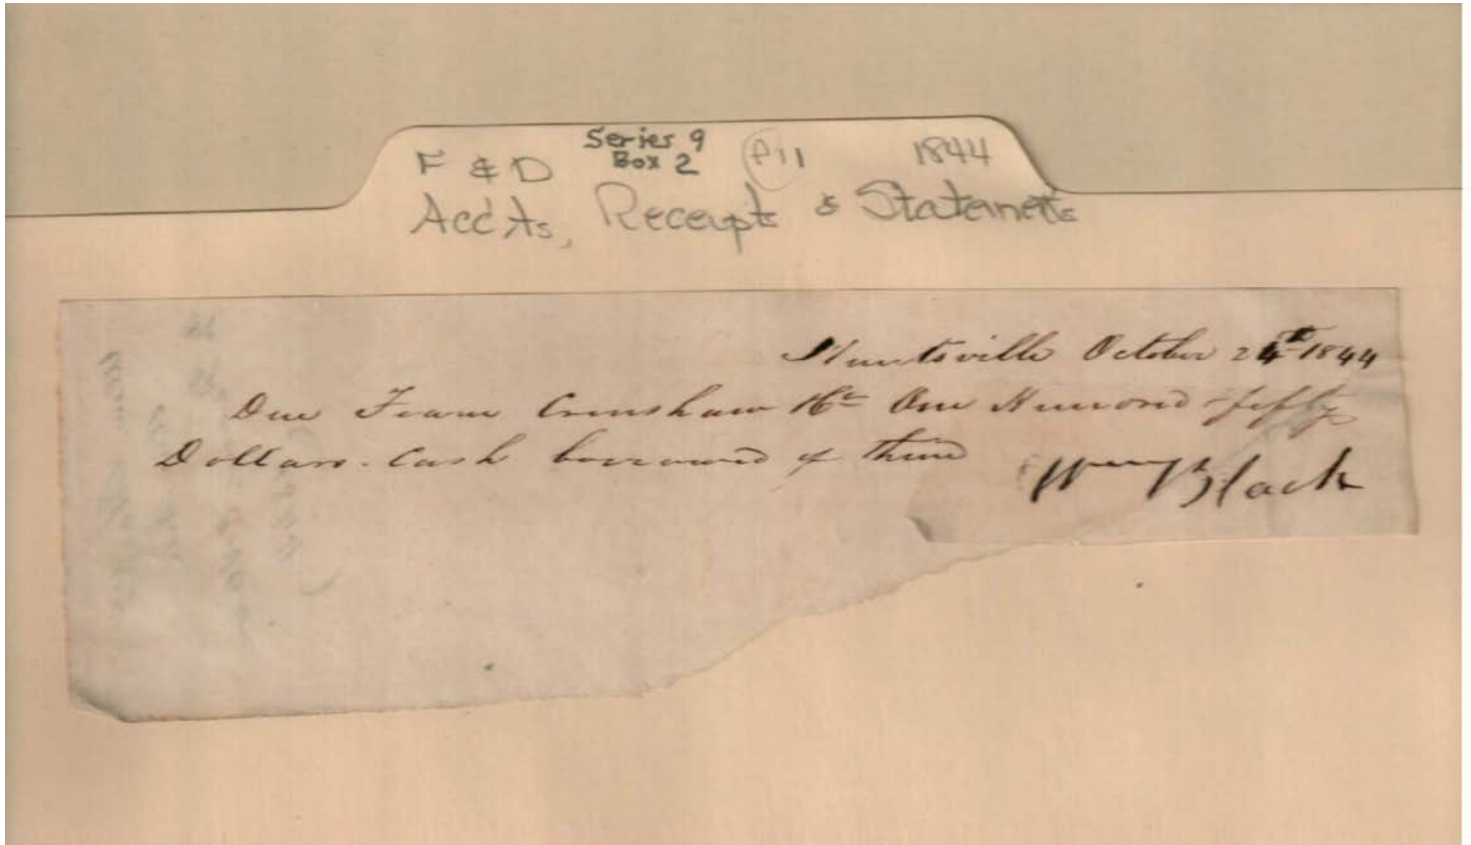 Series 9
F & D Box 2 F11 1844
Acc'ts, Receipts & Statements
Huntsville October 24th 1844
Due Crenshaw One Hundred & fifty
Dollars. Cash borrowed of them
Wm Black